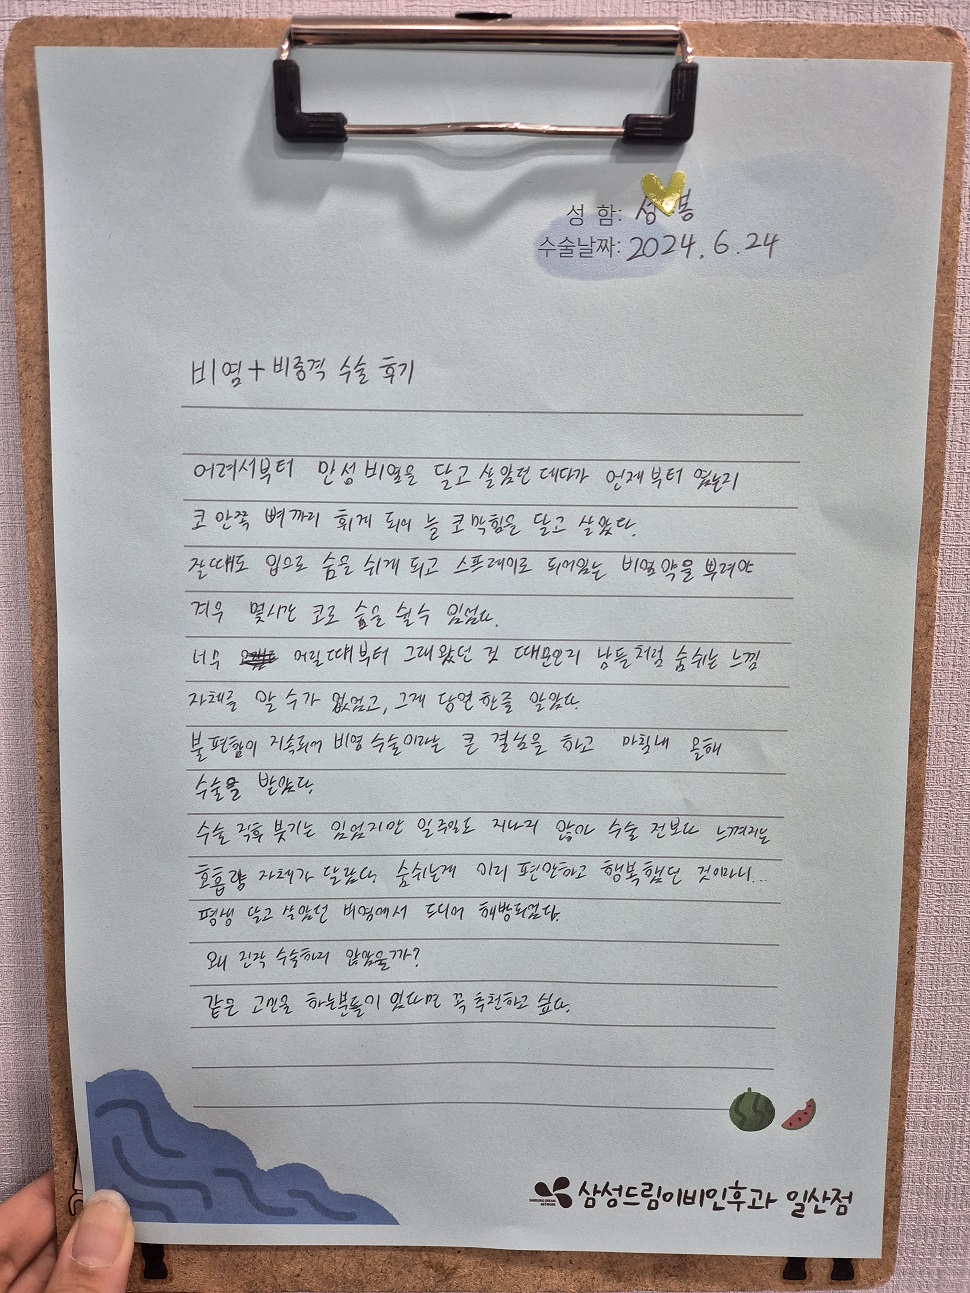 성 함: 성 봉
수술날짜: 2024. 6. 24
비염 + 비중격 수술 후기
어려서부터 만성 비염을 달고 살았던 데다가 언제부터 였는지
코 안쪽 뼈까지 휘게 되어 늘 코막힘을 달고 살았다.
잘때도 입으로 숨을 쉬게 되고 스프레이로 되어있는 비염약을 뿌려야
겨우 몇시간 코로 숨을 쉴 수 있었다.
너무 어릴때부터 그래왔던 것 때문인지 남들처럼 숨쉬는 느낌
자체를 알 수가 없었고, 그게 당연한줄 알았다.
불편함이 지속되어 비염수술이라는 큰 결심을 하고 마침내 올해
수술을 받았다.
수술 직후 붓기는 있었지만 일주일도 지나지 않아 수술 전보다 느껴지는
호흡량 자체가 달랐다. 숨쉬는게 이리 편안하고 행복했던 것이라니...
평생 달고 살았던 비염에서 드디어 해방되었다.
왜 진작 수술하지 않았을까?
같은 고민을 하는분들이 있다면 꼭 추천하고 싶다.
삼성드림이비인후과 일산점